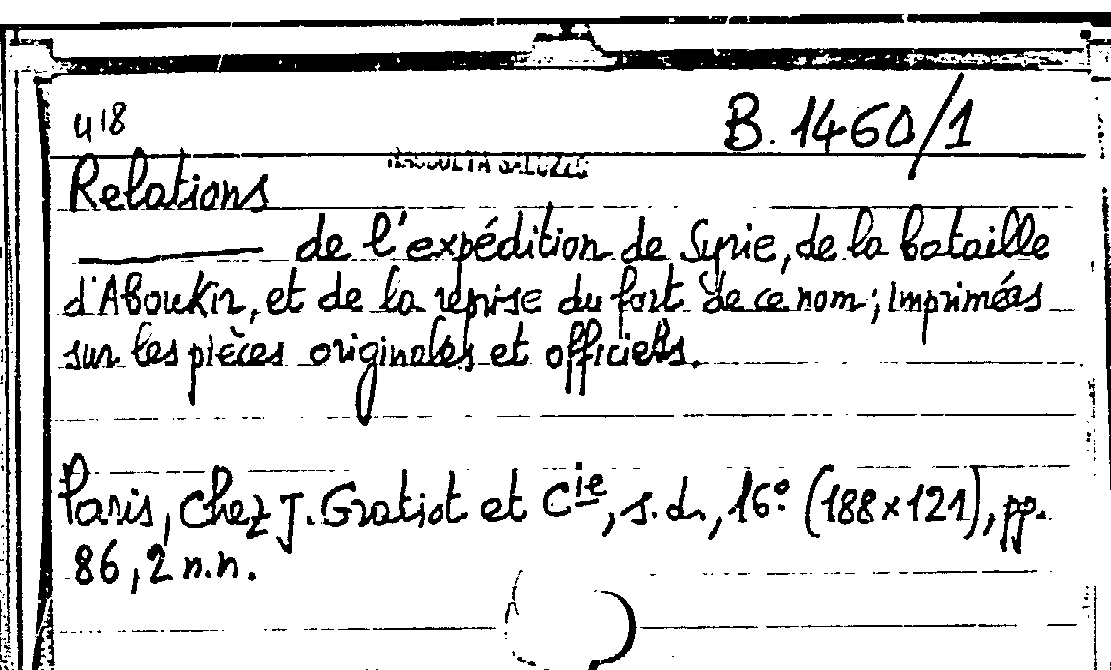 418
B. 1460/1
RACCOLTA SALUZZO
Relations
——— de l'expédition de Syrie, de la bataille
d'Aboukir, et de la reprise du fort de ce nom; imprimées
sur les pièces originales et officiels.
Paris, chez J. Gratiot et Cie, s.d., 16º (188x121), pp.
86, 2 n.n.